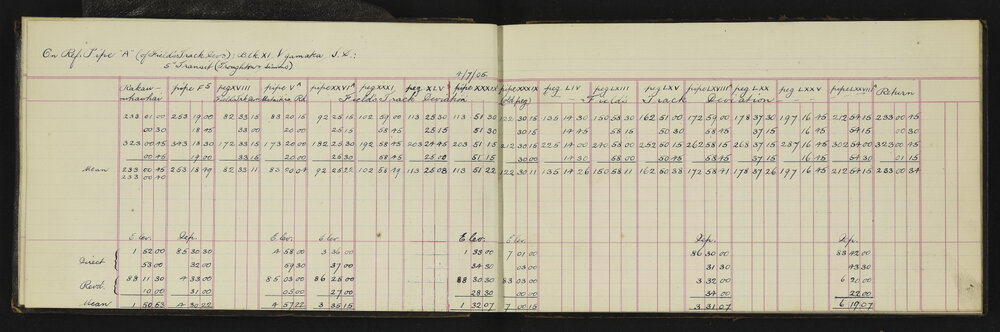 On Ref: Pipe "A" (of Field's Track Devs): Blk XI Ngamaka S.D.:
5" Transit (Troughton & Simms)
4/7/05.
Rakau- pipe F⁵ peg XVIII pipe V^A pipe XXVI^A peg XXXI peg XLV pipe XXXIX pipe XXXIX peg LIV peg LXIII peg LXV pipe LXVIII^A peg LXX peg LXXV pipe LXXVIII^A Return
Rd. Field's Track Deviation (old peg) Field's Track Deviation
233 01 00 253 19 00 82 33 15 83 20 15 92 25 15 102 59 00 113 25 30 113 51 30 122 30 15 135 14 30 150 58 30 162 51 00 172 59 00 178 37 30 197 16 45 212 54 15 233 00 45
00 30 18 45 33 00 20 00 25 15 58 45 25 15 51 30 30 15 14 45 58 15 50 30 58 45 37 15 16 45 54 15 00 30
323 00 45 343 18 30 172 33 15 173 20 00 182 25 30 192 58 45 203 24 45 203 51 15 212 30 15 225 14 00 240 58 00 252 50 45 262 58 15 268 37 15 287 16 45 302 54 00 323 00 45
00 45 19 00 33 15 20 00 25 30 58 45 25 00 51 15 30 00 14 30 58 00 50 45 58 45 37 15 16 45 54 30 01 15
Mean 233 00 45 253 18 49 82 33 11 83 20 04 92 25 22 102 58 49 113 25 08 113 51 22 122 30 11 135 14 26 150 58 11 162 50 38 172 58 41 178 37 26 197 16 45 212 54 15 233 00 34
233 00 40
Elev. Dep. Elev. Elev. Elev. Elev. Dep. Dep.
Direct 1 52 00 85 30 30 4 58 00 3 36 00 1 33 00 7 01 00 86 30 00 83 42 00
53 00 32 00 59 30 37 00 34 30 03 00 31 30 43 30
Revd. 88 11 30 4 33 00 85 03 00 86 25 00 88 30 30 83 03 00 3 32 00 6 20 00
10 00 31 00 05 00 27 00 28 30 34 00 22 00
Mean 1 50 53 4 30 22 4 57 22 3 35 15 1 32 07 7 00 15 3 31 07 6 19 07